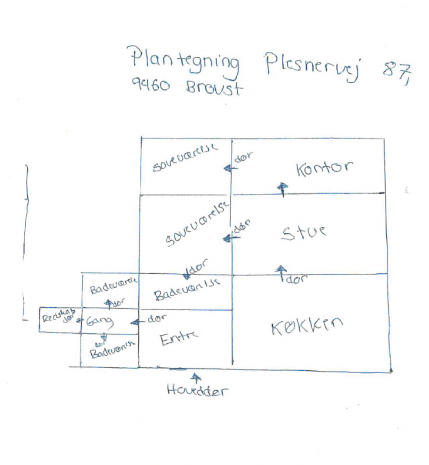 Plantegning Plesnervej 87,
9460 Brovst
soveværelse
dør
Kontor
soveværelse
dør
Stue
dør
Badeværelse
dør
Badeværelse
dør
Redskab
dør
Gang
dør
Badeværelse
Entre
Køkken
Hoveddør